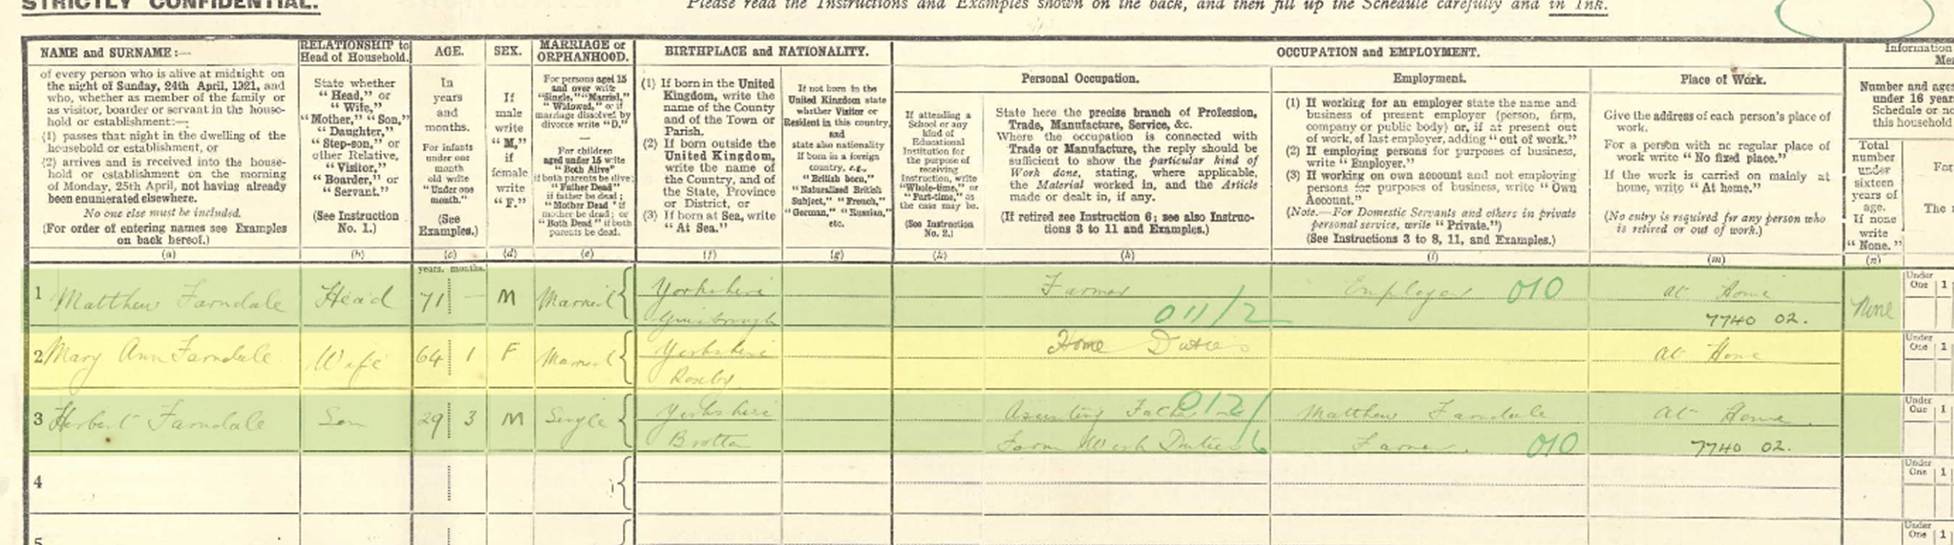 STRICTLY CONFIDENTIAL.
Please read the Instructions and Examples shown on the back, and then fill up the Schedule carefully and in Ink.
NAME and SURNAME:—
of every person who is alive at midnight on
the night of Sunday, 24th April, 1921, and
who, whether as member of the family or
as visitor, boarder or servant in the house-
hold or establishment:—
(1) passes that night in the dwelling of the
household or establishment, or
(2) arrives and is received into the house-
hold or establishment on the morning
of Monday, 25th April, not having already
been enumerated elsewhere.
No one else must be included.
(For order of entering names see Examples
on back hereof.)
(a)
RELATIONSHIP to
Head of Household.
State whether
"Head," or
"Wife,"
"Mother," "Son,"
"Daughter,"
"Step-son," or
other Relative,
"Visitor,"
"Boarder," or
"Servant."
(See Instruction
No. 1.)
(b)
AGE.
In
years
and
months.
For infants
under one
month
old write
"Under one
month."
(See
Examples.)
(c)
SEX.
If
male
write
"M,"
if
female
write
"F."
(d)
MARRIAGE or
ORPHANHOOD.
For persons aged 15
and over write
"Single," "Married,"
"Widowed," or if
marriage dissolved by
divorce write "D."
For children
aged under 15 write
"Both Alive"
if both parents be alive;
"Father Dead"
if father be dead;
"Mother Dead" if
mother be dead; or
"Both Dead" if both
parents be dead.
(e)
BIRTHPLACE and NATIONALITY.
(1) If born in the United
Kingdom, write the
name of the County
and of the Town or
Parish.
(2) If born outside the
United Kingdom,
write the name of
the Country, and of
the State, Province
or District, or
(3) If born at Sea, write
"At Sea."
(f)
If not born in the
United Kingdom state
whether Visitor or
Resident in this country,
and
state also nationality
if born in a foreign
country, e.g.,
"British born,"
"Naturalised British
Subject," "French,"
"German," "Russian,"
etc.
(g)
OCCUPATION and EMPLOYMENT.
If attending a
School or any
kind of
Educational
Institution for
the purpose of
receiving
Instruction, write
"Whole-time," or
"Part-time," as
the case may be.
(See Instruction
No. 2.)
(h)
Personal Occupation.
State here the precise branch of Profession,
Trade, Manufacture, Service, &c.
Where the occupation is connected with
Trade or Manufacture, the reply should be
sufficient to show the particular kind of
Work done, stating, where applicable,
the Material worked in, and the Article
made or dealt in, if any.
(If retired see Instruction 6; see also Instruc-
tions 3 to 11 and Examples.)
(k)
Employment.
(1) If working for an employer state the name and
business of present employer (person, firm,
company or public body) or, if at present out
of work, of last employer, adding "out of work."
(2) If employing persons for purposes of business,
write "Employer."
(3) If working on own account and not employing
persons for purposes of business, write "Own
Account."
(Note.—For Domestic Servants and others in private
personal service, write "Private.")
(See Instructions 3 to 8, 11, and Examples.)
(l)
Place of Work.
Give the address of each person's place of
work.
For a person with no regular place of
work write "No fixed place."
If the work is carried on mainly at
home, write "At home."
(No entry is required for any person who
is retired or out of work.)
(m)
Number and ages
under 16 years
Schedule or no
this household
Total
number
under
sixteen
years of
age.
If none
write
"None."
(n)
years. months.
1 Matthew Farndale Head 71 — M Married Yorkshire Farmer Employer 010 at Home None
Guisbrough 011/2 7740 02.
Under
One 1
2 Mary Ann Farndale Wife 64 1 F Married Yorkshire Home Duties at Home
Roxby
Under
One 1
3 Herbert Farndale Son 29 3 M Single Yorkshire Assisting Father 012/ Matthew Farndale At Home.
Brotton Farm Work Duties 6 Farmer. 010 7740 02.
Under
One 1
4
Under
One 1
5
Under
One 1